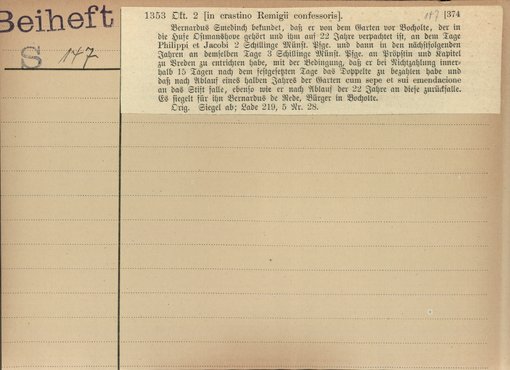 Beiheft
S 147
1353 Okt. 2 [in crastino Remigii confessoris]. 147 [374
Bernardus Smedinch bekundet, daß er von dem Garten vor Bocholte, der in
die Hufe Osmandhove gehört und ihm auf 22 Jahre verpachtet ist, an dem Tage
Philippi et Jacobi 2 Schillinge Münst. Pfge. und dann in den nächstfolgenden
Jahren an demselben Tage 3 Schillinge Münst. Pfge. an Pröpstin und Kapitel
zu Vreden zu entrichten habe, mit der Bedingung, daß er bei Nichtzahlung inner-
halb 15 Tagen nach dem festgesetzten Tage das Doppelte zu bezahlen habe und
daß nach Ablauf eines halben Jahres der Garten cum sepe et sui emendacione
an das Stift falle, ebenso wie er nach Ablauf der 22 Jahre an diese zurückfalle.
Es siegelt für ihn Bernardus de Rede, Bürger in Bocholte.
Orig. Siegel ab; Lade 219, 5 Nr. 28.